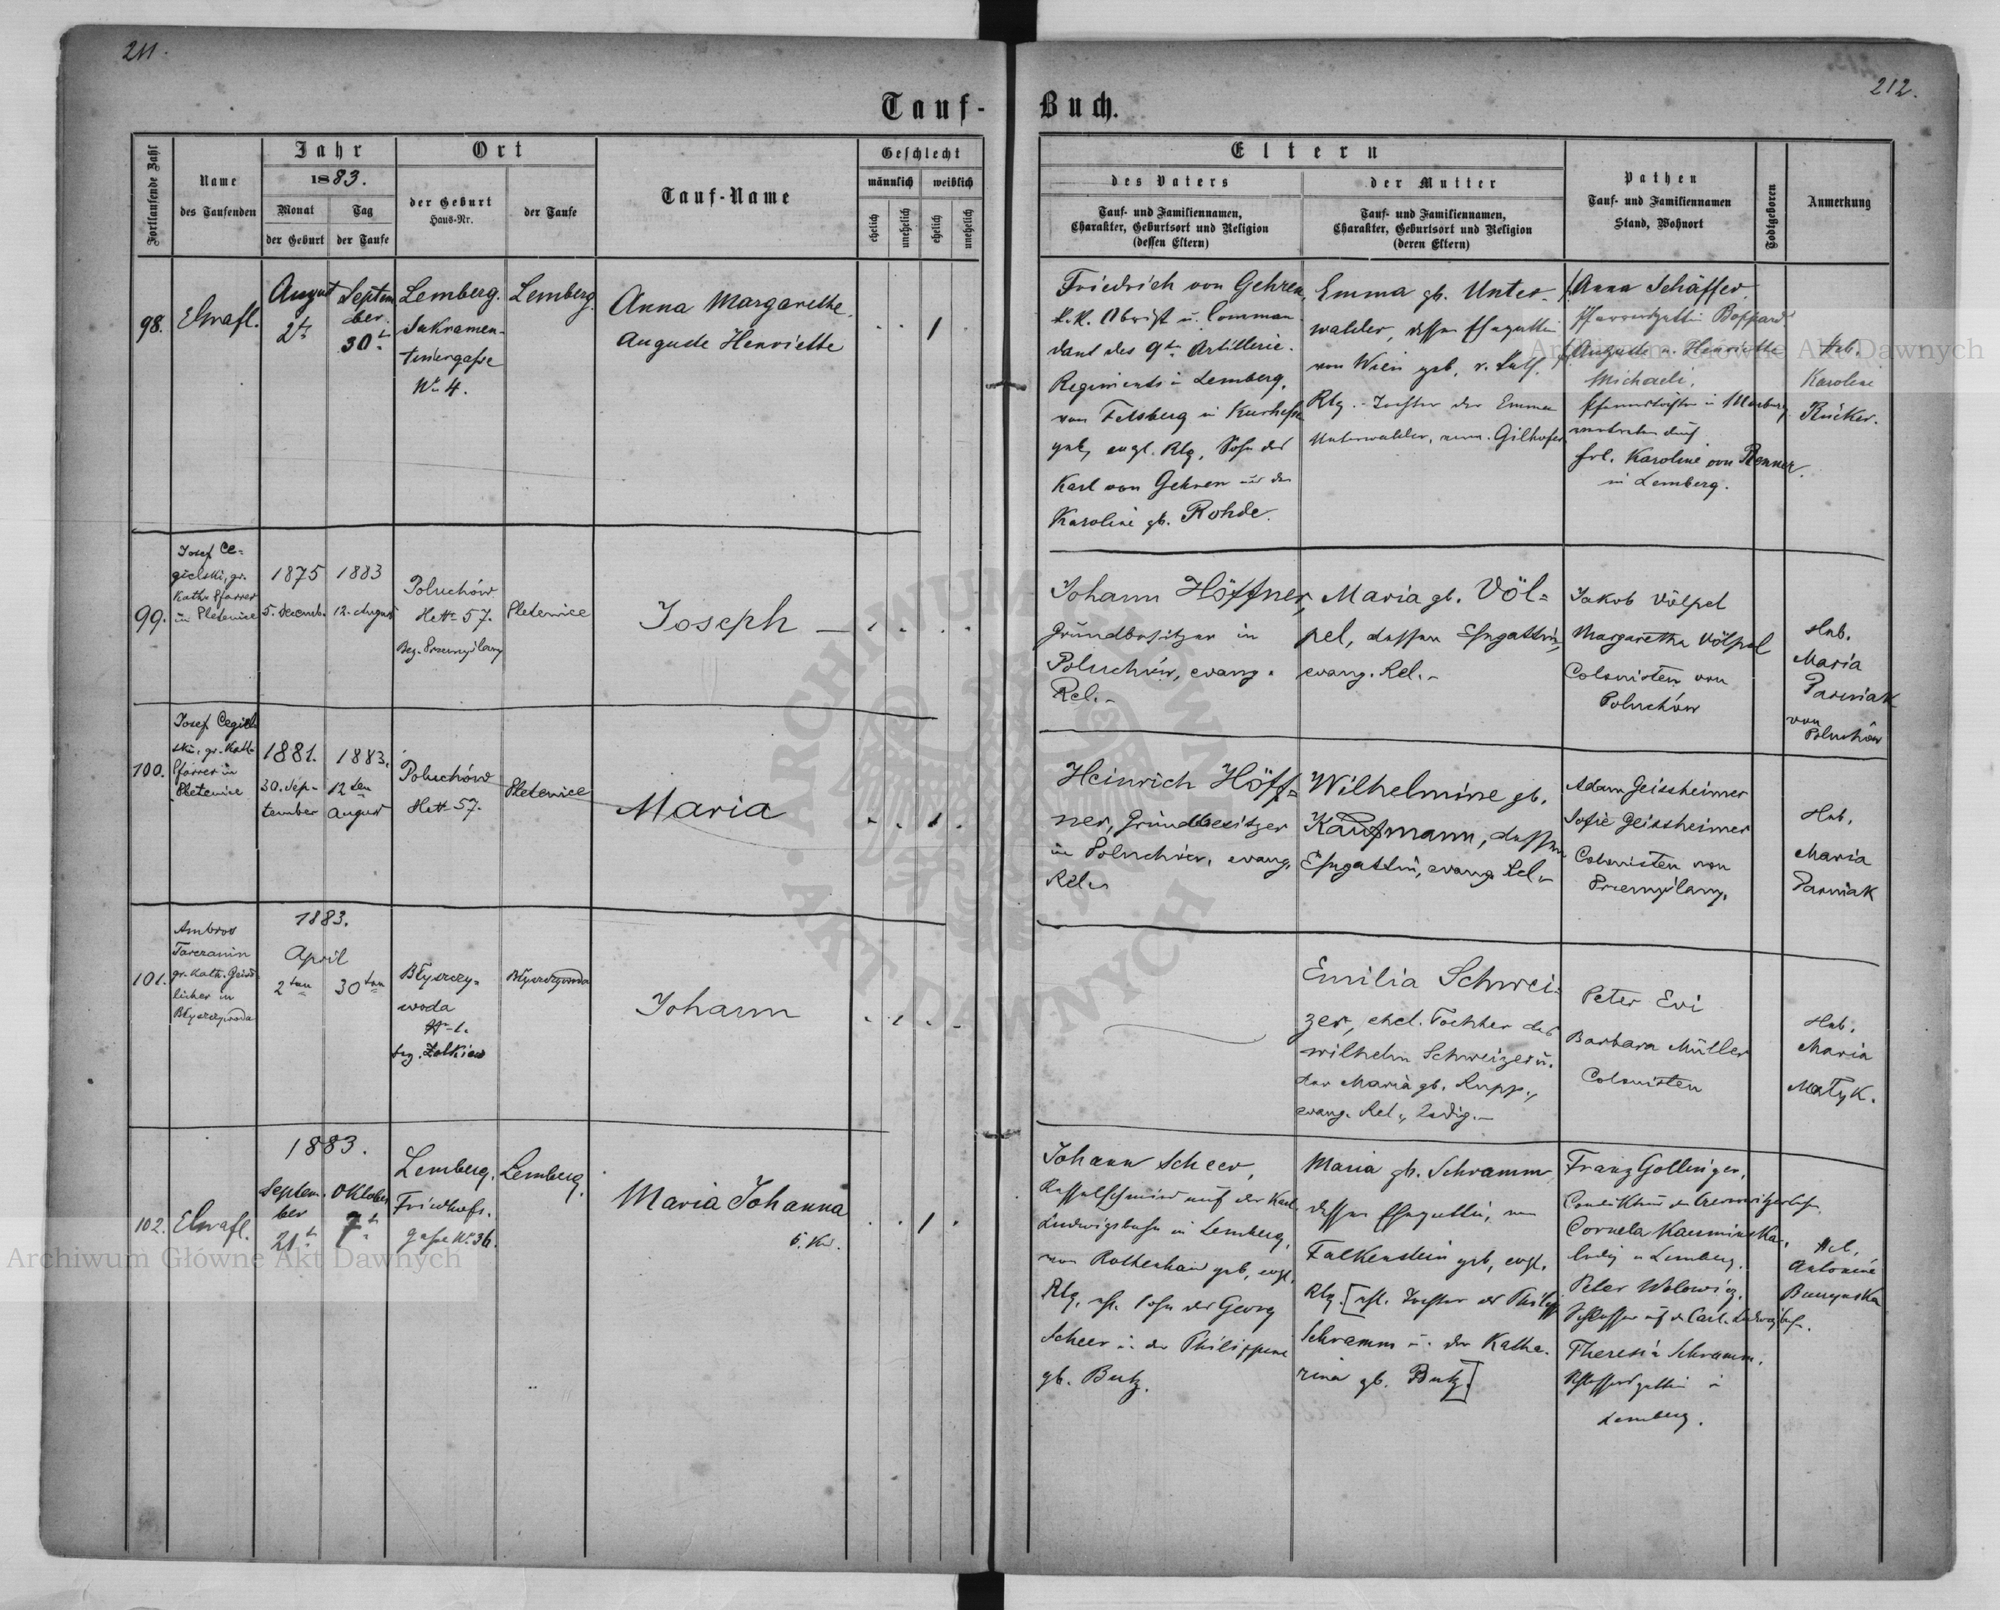 211.
212.
Tauf-
Buch.
Fortlaufende Zahl
Name
des Taufenden
Jahr
1883.
Monat
Tag
der Geburt
der Taufe
Ort
der Geburt
Haus-Nr.
der Taufe
Tauf-Name
Geschlecht
männlich
weiblich
ehelich
unehelich
ehelich
unehelich
Eltern
des Vaters
Tauf- und Familiennamen,
Charakter, Geburtsort und Religion
(dessen Eltern)
der Mutter
Tauf- und Familiennamen,
Charakter, Geburtsort und Religion
(deren Eltern)
Pathen
Tauf- und Familiennamen
Stand, Wohnort
Todtgeboren
Anmerkung
98.
August
2t
Septem
ber
30t
Lemberg.
Sakramen-
tinergasse
Nr. 4.
Lemberg.
Anna Margarethe
Auguste Henriette
1
Friedrich von Gehren,
k.k. Obrist u. Comman
dant des 9ten Artillerie-
Regiments in Lemberg,
von Felsberg in Kurhessen
geb, evgl. Rlg, Sohn des
Karl von Gehren und der
Karoline gb. Rohde.
Emma gb. Unter-
walder, dessen Ehegattin
von Wien geb.
Rlg. - Tochter der Emma
Unterwalder, Gilhofer
Anna Schäffer
Pfarrersgattin Boppard
Auguste u. Henriette
Michaeli,
in Marburg
vertreten durch
Frl. Karoline von Renner
in Lemberg.
Heb.
Karoline
Rücker.
99.
Josef Ce-
gielski, gr.
kath. Pfarrer
in Pletenice
1875
5. Decemb.
1883
12. August
Poluchów
57.
Bez. Przemyślany
Pletenice
Joseph
Johann Höffner,
Grundbesitzer in
Poluchów, evang.
Rel.-
Maria gb. Völ-
pel, dessen Ehegattin,
evang. Rel.-
Jakob Völpel
Margaretha Völpel
Colonisten von
Poluchów
Heb.
Maria
Parniak
von
Poluchów
100.
Josef Cegiel-
ski, gr. kath
Pfarrer in
Pletenice
1881.
30. Sep-
tember
1883.
12ten
August
Poluchów
57.
Pletenice
Maria
1
Heinrich Höff-
ner, Grundbesitzer
in Poluchów, evang.
Rel.
Wilhelmine gb.
Kaufmann, dessen
Ehegattin, evang. Rel.-
Adam Geissheimer
Sofie Geissheimer
Colonisten von
Przemyślany.
Heb.
Maria
Parniak
101.
Ambros
gr. kath. Geist-
licher in
Błyszczywoda
1883.
April
2ten
30ten
Błyszczy-
woda
1.
bez. Żołkiew
Błyszczywoda
Johann
Emilia Schwei-
zer, ehel. Tochter des
Wilhelm Schweizer u.
der Maria gb. Rupp.,
evang. Rel., ledig.-
Peter Evi
Barbara Müller
Colonisten
Heb.
Maria
Matyk.
102.
1883.
Septem
ber
21t
Oktober
7t
Lemberg,
Friedhofs-
gasse Nr. 36.
Lemberg.
Maria Johanna
1
Johann Scheer,
Kesselschmied auf der Karl
Ludwigsbahn in Lemberg,
von Rothenhan geb, evgl.
Rlg, ehl. Sohn des Georg
Scheer u. der Philippine
gb. Butz.
Maria gb. Schramm
dessen Ehegattin, von
Falkenstein geb, evgl.
Rlg. [ehl. Tochter des Philipp
Schramm u. der Katha-
rina gb. Butz]
Franz Gollinger,
Cornela Kaminska,
ledig in Lemberg.
Peter Wolowicz,
Schlosser auf d. Carl Ludwigsbahn.
Theresia Schramm,
Schlossersgattin in
Lemberg.
Heb.
Antonine
Archiwum Główne Akt Dawnych
Archiwum Główne Akt Dawnych
ARCHIWUM GŁÓWNE AKT DAWNYCH